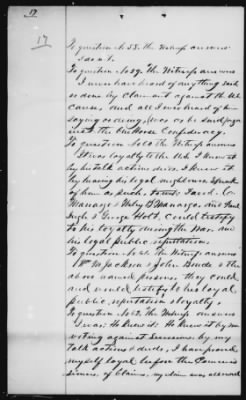 17
17
To question No 58. the Witness answers
I don't.
To question No 59. the Witness answers
I never have heard of anything said
or done by Claimant against the US
cause, and all I ever heard of him
saying or doing, was as he said against
the Confederacy.
To question No 60 the Witness answers
It was loyalty to the U.S. I knew it
by his talk actions &c. I knew it
by hearing his loyal neighbors Speak
of him as such. Jacob C.
&
& George Holt, could testify
to his loyalty during the War, and
his loyal public reputation.
To question No 61. the Witness answers
Wm Jackson & John & the
above named persons they could
and would testify to his loyal
public reputation & loyalty.
To question No 62. the Witness answers
I was: He knew it: He knew it by my
voting against Secession: by my
talk actions & deeds. I have proved
myself loyal before the Commis
sioners of Claims, my claim was allowed